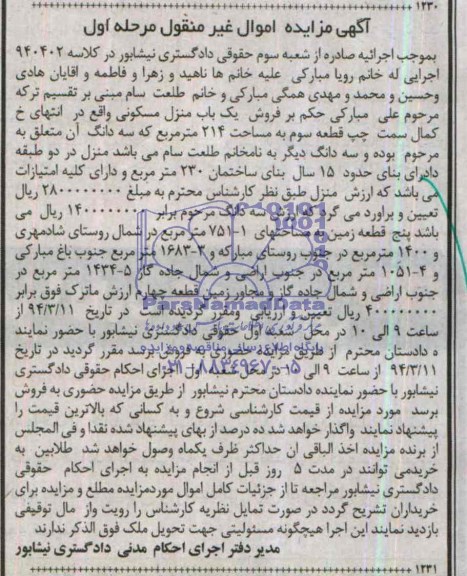 ۱۲۳۰
آگهی مزایده اموال غیر منقول مرحله اول
بموجب اجرائیه صادره از شعبه سوم حقوقی دادگستری نیشابور در کلاسه ۹۴۰۴۰۲
اجرایی له خانم رویا مبارکی علیه خانم ها ناهید و زهرا و فاطمه و اقایان هادی
وحسین و محمد و مهدی همگی مبارکی و خانم طلعت سام مبنی بر تقسیم ترکه
مرحوم علی مبارکی حکم بر فروش یک باب منزل مسکونی واقع در انتهای خ
کمال سمت چپ قطعه سوم به مساحت ۲۱۴ مترمربع که سه دانگ آن متعلق به
مرحوم بوده و سه دانگ دیگر به نامخانم طلعت سام می باشد منزل در دو طبقه
دادرای بنای حدود ۱۵ سال بنای ساختمان ۲۳۰ متر مربع و دارای کلیه امتیازات
می باشد که ارزش منزل طبق نظر کارشناس محترم به مبلغ ۲۸۰۰۰۰۰۰۰۰ ریال
تعیین و براورد می گردد که ارزش سه دانگ مرحوم برابر ۱۴۰۰۰۰۰۰۰۰ ریال می
باشد پنج قطعه زمین به مساحتهای ۱-۷۵۱ متر مربع در شمال روستای شادمهری
و ۱۴۰۰ مترمربع در جنوب روستای مبارکه و ۳-۱۶۸۳ متر مربع جنوب باغ مبارکی
و ۴-۱۰۵۱ متر مربع در جنوب اراضی و شمال جاده گاز ۵-۱۴۳۴ متر مربع در
جنوب اراضی و شمال جاده گاز و مجاور زمین قطعه چهارم ارزش ماترک فوق برابر
ریال تعیین و ارزیابی ومقرر گردیده است در تاریخ ۹۴/۳/۱۱ از
ساعت ۹ الی ۱۰ در محل شعبه اول حقوقی دادگستری نیشابور با حضور نمایند
ه دادستان محترم از طریق مزایده حضوری به فروش برسد مقرر گردید در تاریخ
۹۴/۳/۱۱ از ساعت ۹ الی ۱۰ در محل شعبه اول اجرای احکام حقوقی دادگستری
نیشابور با حضور نماینده دادستان محترم نیشابور از طریق مزایده حضوری به فروش
برسد مورد مزایده از قیمت کارشناسی شروع و به کسانی که بالاترین قیمت را
پیشنهاد نمایند واگذار خواهد شد ده درصد از بهای پیشنهاد شده نقدا و فی المجلس
از برنده مزایده اخذ الباقی ان حداکثر ظرف یکماه وصول خواهد شد طلابین به
خریدمی توانند در مدت ۵ روز قبل از انجام مزایده به اجرای احکام حقوقی
دادگستری نیشابور مراجعه تا از جزئیات کامل اموال موردمزایده مطلع و مزایده برای
خریداران تشریح گردد در صورت تمایل نظریه کارشناس را رویت واز مال توقیفی
بازدید نمایند این اجرا هیچگونه مسئولیتی جهت تحویل ملک فوق الذکر ندارند
مدیر دفتر اجرای احکام مدنی دادگستری نیشابور
۱۲۳۱
ParsNamadData
پایگاه اطلاع رسانی مناقصه و مزایده
۰۲۱-۸۸۳۴۹۶۷۰-۵